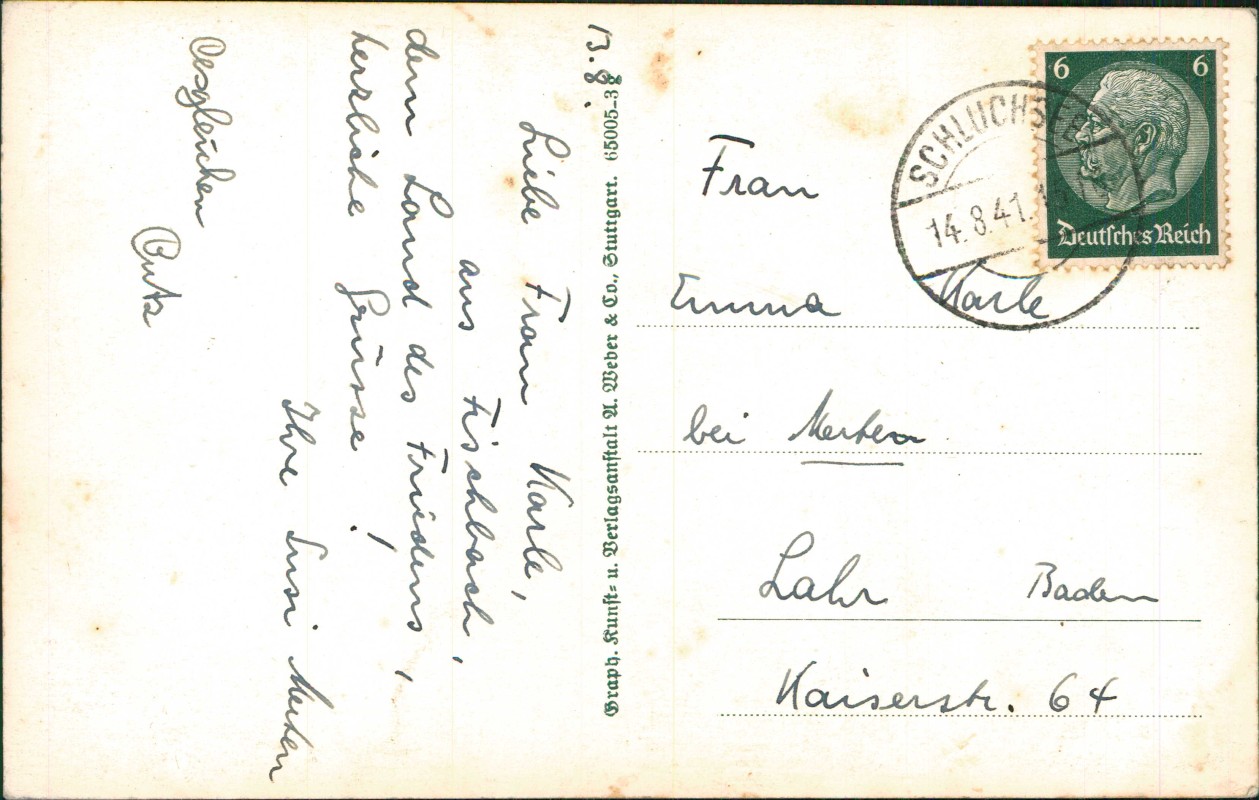 13. 8.
Liebe Frau Karle,
aus Fischbach,
dem Land des Friedens,
herzliche Grüsse!
Ihre Lusi Merten
Desgleichen
Graph. Kunst- u. Verlagsanstalt A. Weber & Co., Stuttgart. 65005-38
6 6
Deutsches Reich
SCHLUCHSEE
14.8.41.
Frau
Emma Karle
bei Merten
Lahr Baden
Kaiserstr. 64